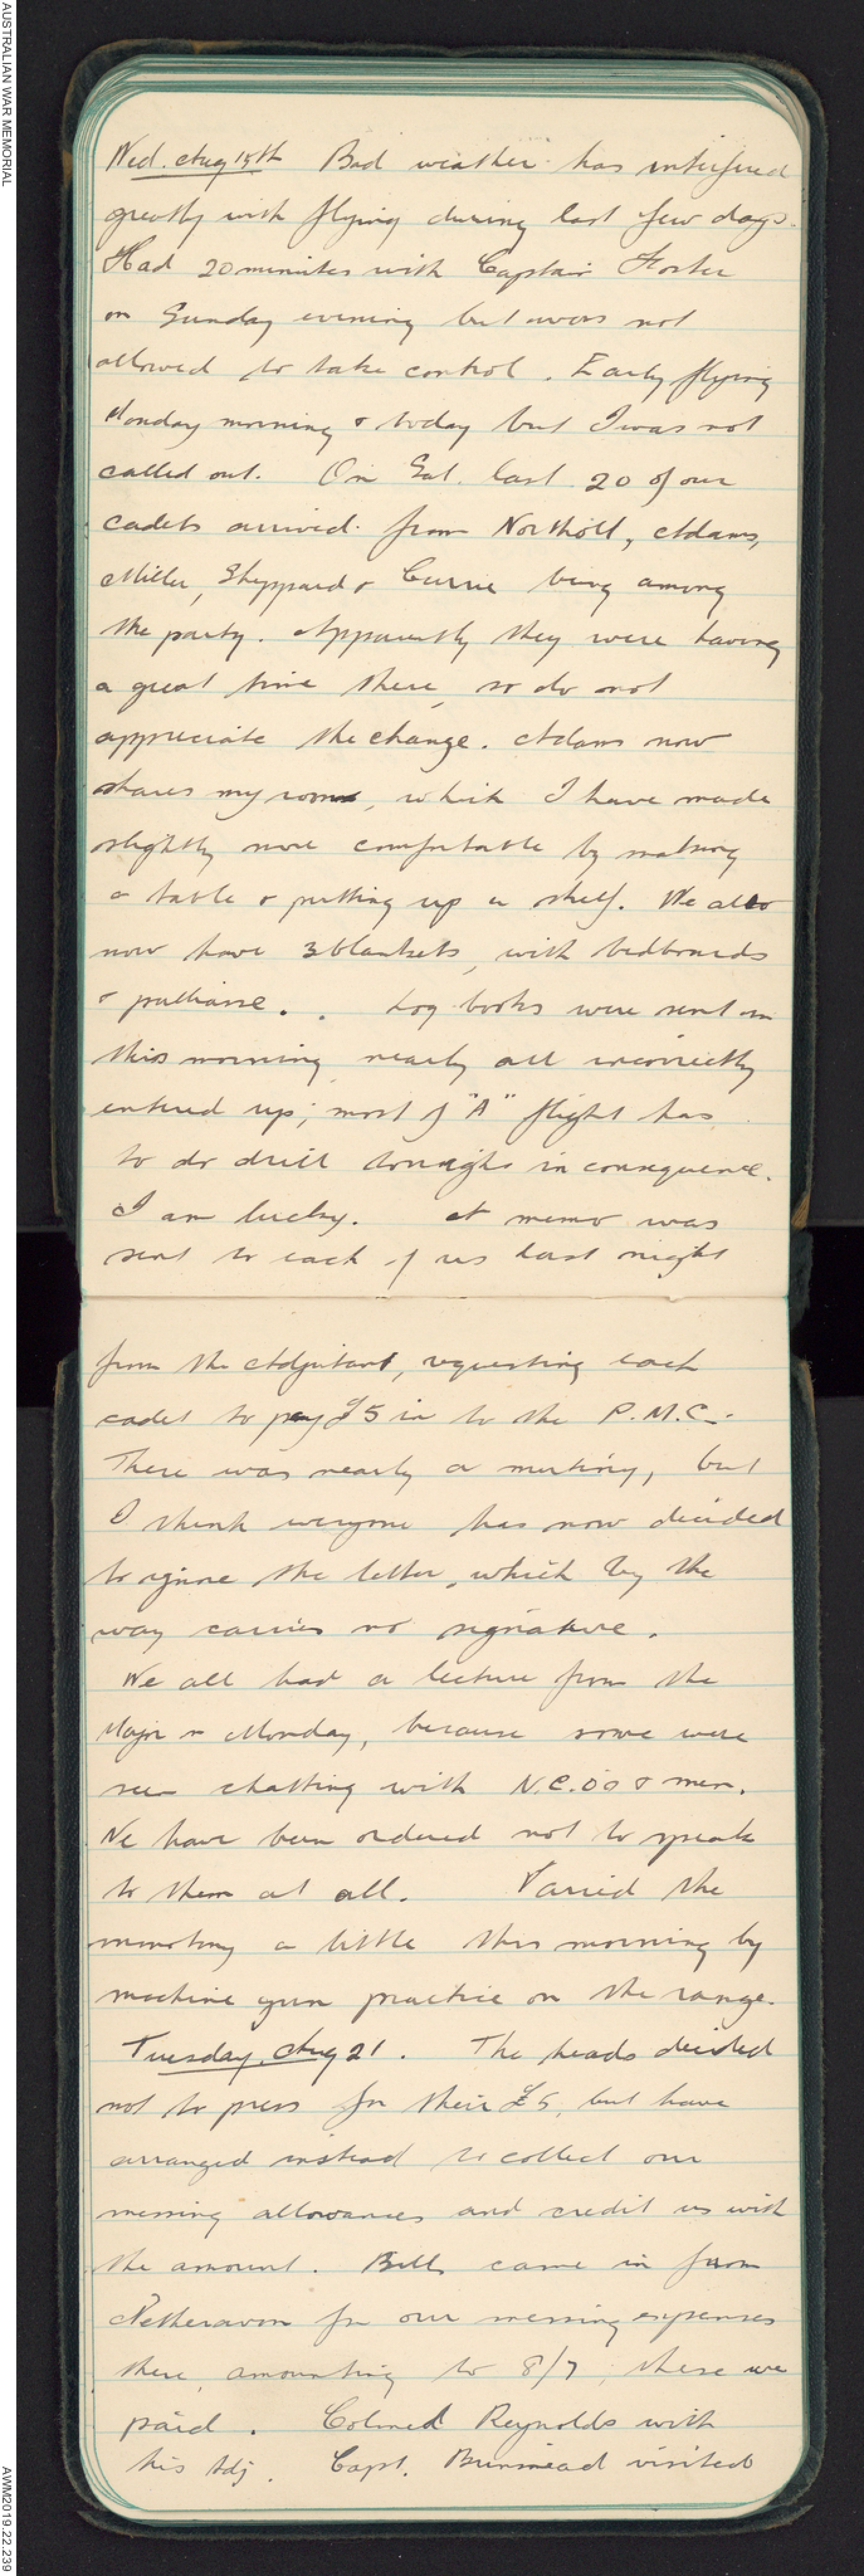 AUSTRALIAN WAR MEMORIAL
Wed. Aug 15th Bad weather has interfered
greatly with flying during last few days.
Had 20 minutes with Captain Foster
on Sunday evening but was not
allowed to take control. Early flying
Monday morning & today but I was not
called out. On Sat. last 20 of our
cadets arrived from Northolt, Adams,
Miller, Sheppard & Currie being among
the party. Apparently they were having
a great time there, so do not
appreciate the change. Adams now
shares my room, which I have made
slightly more comfortable by making
a table & putting up a shelf. We also
now have 3 blankets, with bedboards
& palliasse. . Log books were sent in
this morning nearly all incorrectly
entered up; most of "A" flight has
to do drill tonight in consequence.
I am lucky. A memo was
sent to each of us last night
from the Adjutant, requesting each
cadet to pay £5 in to the P.M.C.
There was nearly a mutiny, but
I think everyone has now decided
to ignore the letter, which by the
way carries no signature.
We all had a lecture from the
Major on Monday, because some were
seen chatting with N.C.O's & men.
We have been ordered not to speak
to them at all. Varied the
monotony a little this morning by
machine gun practice on the range.
Tuesday, Aug 21. The heads decided
not to press for their £5, but have
arranged instead to collect our
messing allowances and credit us with
the amount. Bills came in from
Netheravon for our messing expenses
there, amounting to 8/7, these we
paid. Colonel Reynolds with
his Adj. Capt. Brinsmead visited
AWM2019.22.239